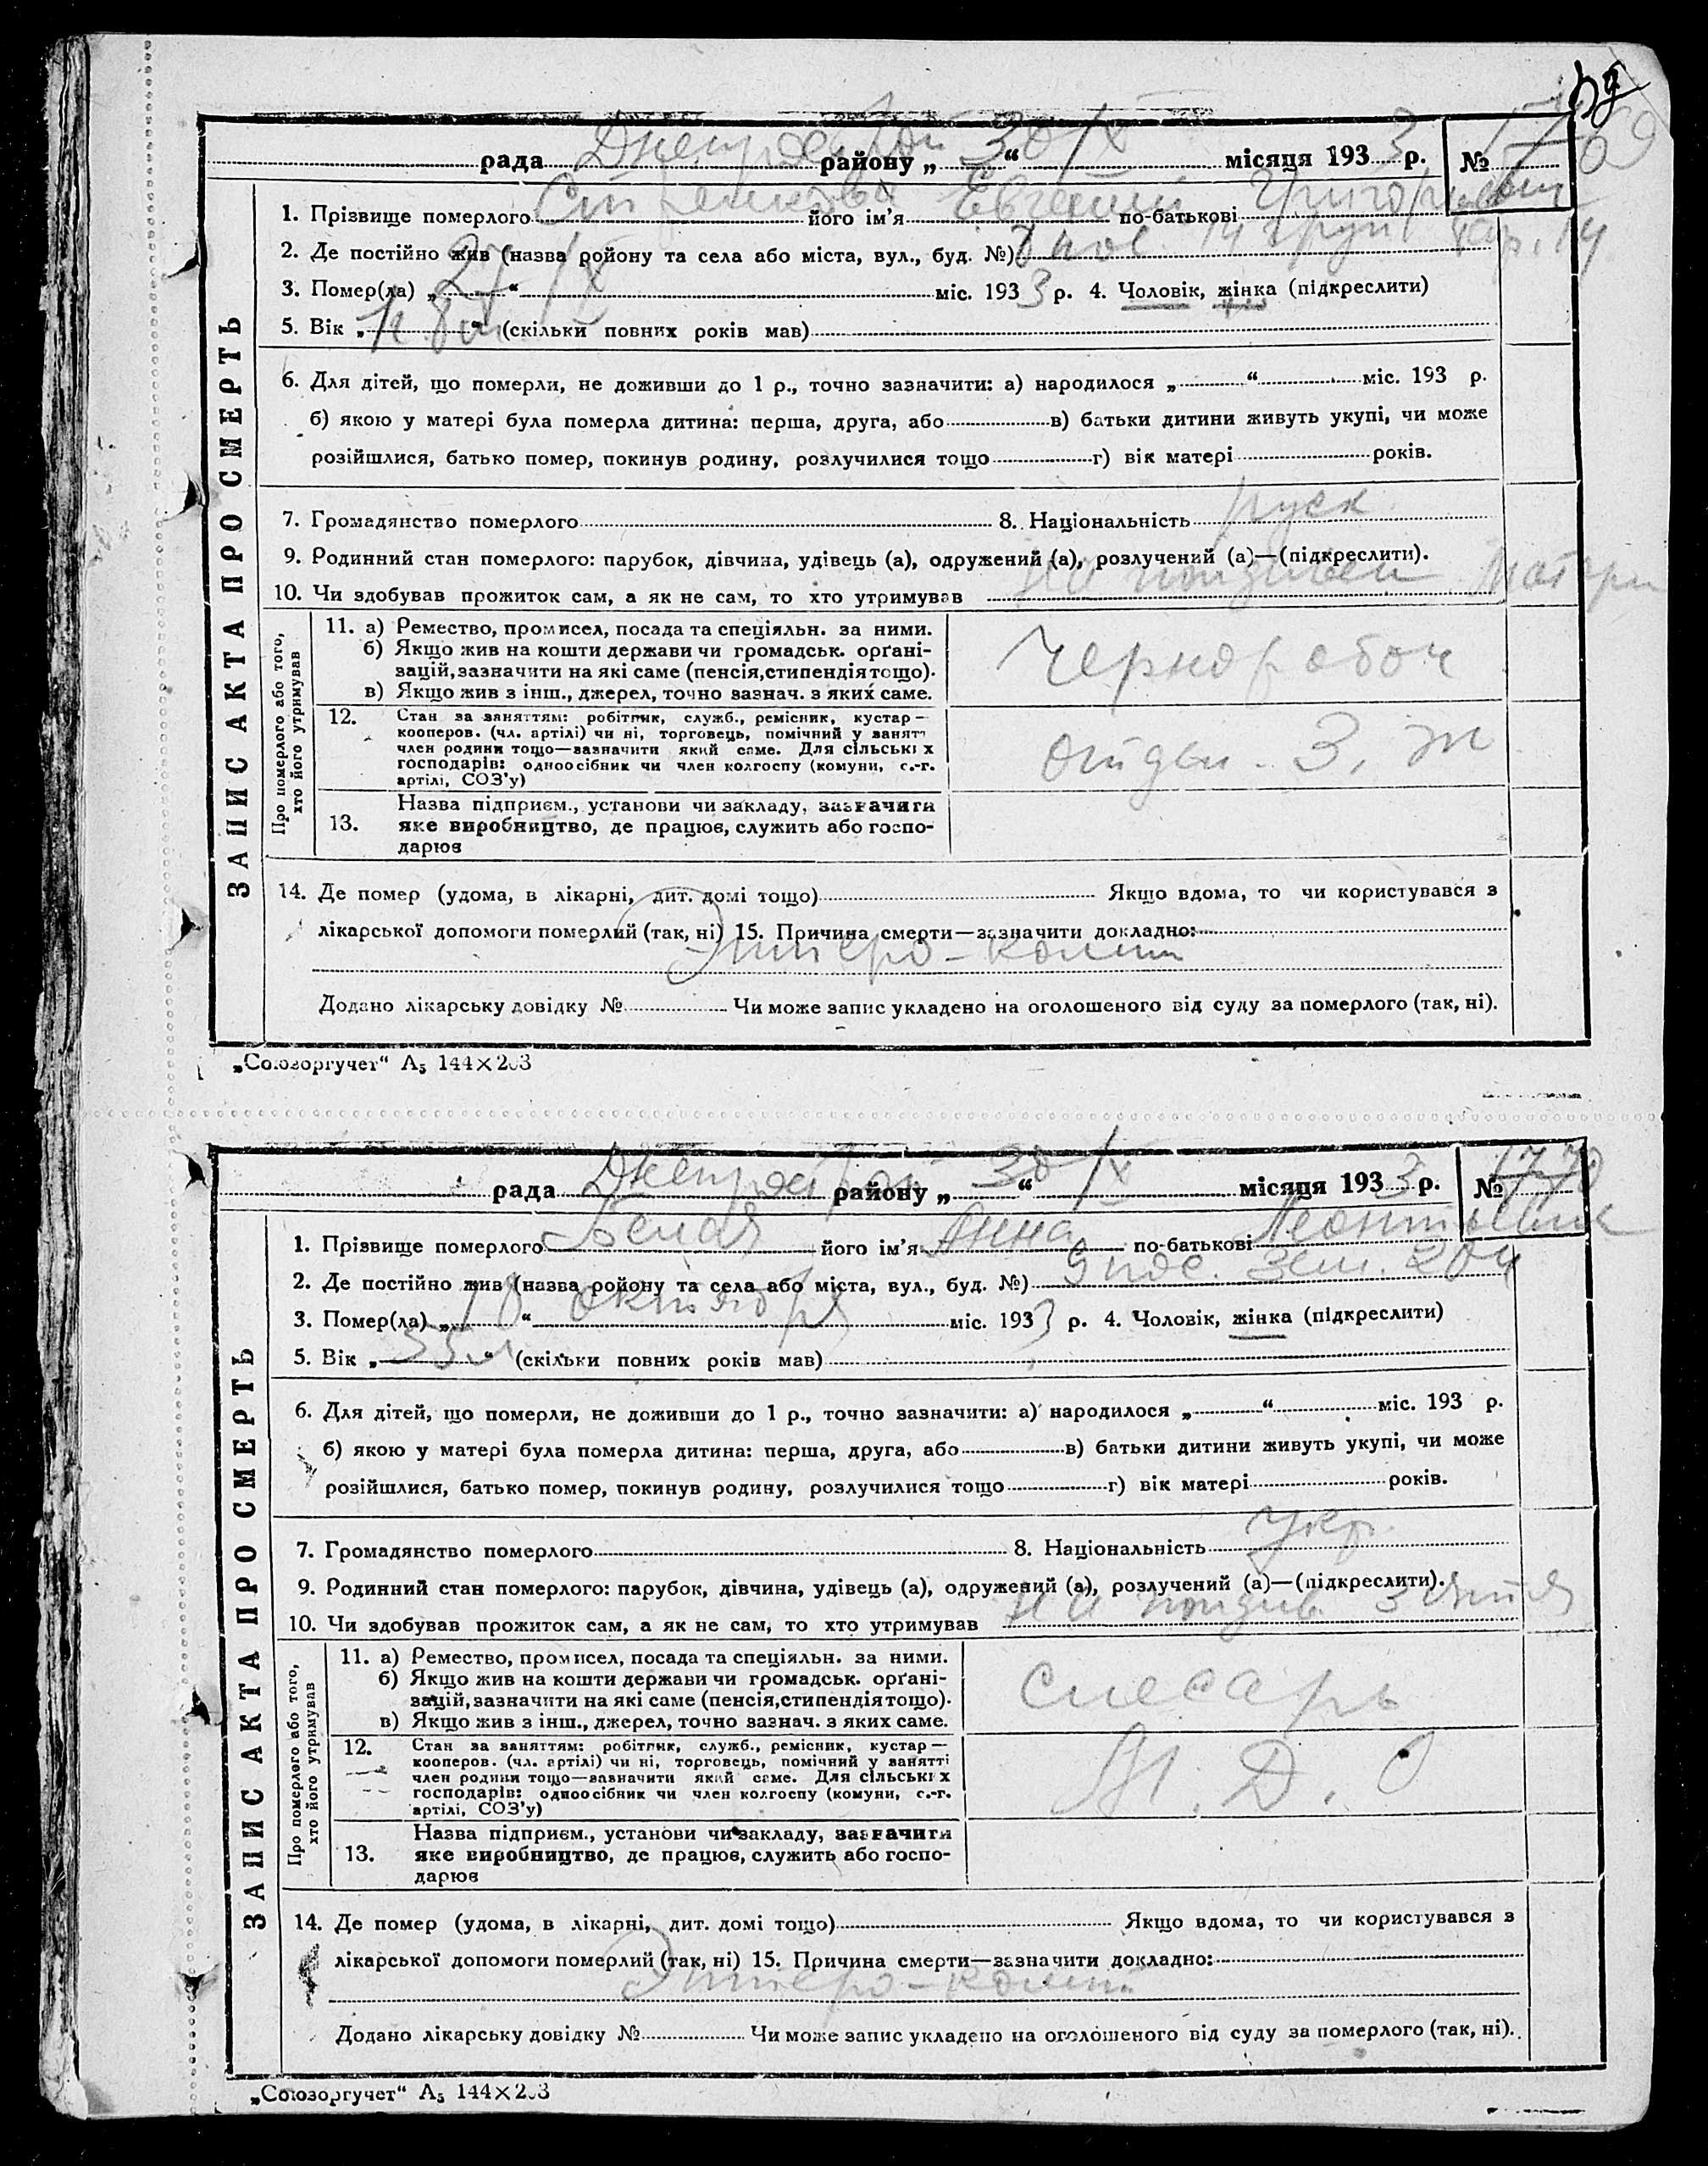 рада Днепрострой району „ 30 “ IX місяця 193 3 р. № 1769
1. Прізвище померлого його ім'я Евгений по-батькові Григорьевич
2. Де постійно жив (назва ройону та села або міста, вул., буд. №) пос. 14 груп
3. Помер(ла) „ 27 “ IX міс. 193 3 р. 4. Чоловік, жінка (підкреслити)
5. Вік „ “ (скільки повних років мав)
6. Для дітей, що померли, не доживши до 1 р., точно зазначити: а) народилося „ “ міс. 193 р.
б) якою у матері була померла дитина: перша, друга, або в) батьки дитини живуть укупі, чи може
розійшлися, батько помер, покинув родину, розлучилися тощо г) вік матері років.
7. Громадянство померлого 8. Національність руск
9. Родинний стан померлого: парубок, дівчина, удівець (а), одружений (а), розлучений (а)—(підкреслити).
10. Чи здобував прожиток сам, а як не сам, то хто утримував на иждивен матери
ЗАПИС АКТА ПРО СМЕРТЬ
Про померлого або того, хто його утримував
11. а) Ремество, промисел, посада та спеціяльн. за ними.
б) Якщо жив на кошти держави чи громадськ. орґані-
зацій, зазначити на які саме (пенсія, стипендія тощо).
в) Якщо жив з інш., джерел, точно зазнач. з яких саме.
Чернорабоч
12. Стан за заняттям: робітник, служб., ремісник, кустар—
кооперов. (чл. артілі) чи ні, торговець, помічний у занятті
член родини тощо—зазначити який саме. Для сільських
господарів: одноосібник чи член колгоспу (комуни, с.-г.
артілі, СОЗ'у)
отдел. З. Ж
13. Назва підприєм., установи чи закладу, зазначити
яке виробництво, де працює, служить або госпо-
дарює
14. Де помер (удома, в лікарні, дит. домі тощо) Якщо вдома, то чи користувався з
лікарської допомоги померлий (так, ні) 15. Причина смерти—зазначити докладно:
Энтеро-колит
Додано лікарську довідку № Чи може запис укладено на оголошеного від суду за померлого (так, ні).
„Союзоргучет“ А5 144×203
рада Днепрострой району „ 30 “ IX місяця 193 3 р. № 1770
1. Прізвище померлого Белая його ім'я Анна по-батькові Леонтьевна
2. Де постійно жив (назва ройону та села або міста, вул., буд. №) 9 пос. зем. 204
3. Помер(ла) „ “ октября міс. 193 3 р. 4. Чоловік, жінка (підкреслити)
5. Вік „ 55 л “ (скільки повних років мав)
6. Для дітей, що померли, не доживши до 1 р., точно зазначити: а) народилося „ “ міс. 193 р.
б) якою у матері була померла дитина: перша, друга, або в) батьки дитини живуть укупі, чи може
розійшлися, батько помер, покинув родину, розлучилися тощо г) вік матері років.
7. Громадянство померлого 8. Національність Укр.
9. Родинний стан померлого: парубок, дівчина, удівець (а), одружений (а), розлучений (а)—(підкреслити).
10. Чи здобував прожиток сам, а як не сам, то хто утримував на иждив. зятя
ЗАПИС АКТА ПРО СМЕРТЬ
Про померлого або того, хто його утримував
11. а) Ремество, промисел, посада та спеціяльн. за ними.
б) Якщо жив на кошти держави чи громадськ. орґані-
зацій, зазначити на які саме (пенсія, стипендія тощо).
в) Якщо жив з інш., джерел, точно зазнач. з яких саме.
слесарь
12. Стан за заняттям: робітник, служб., ремісник, кустар—
кооперов. (чл. артілі) чи ні, торговець, помічний у занятті
член родини тощо—зазначити який саме. Для сільських
господарів: одноосібник чи член колгоспу (комуни, с.-г.
артілі, СОЗ'у)
13. Назва підприєм., установи чи закладу, зазначити
яке виробництво, де працює, служить або госпо-
дарює
14. Де помер (удома, в лікарні, дит. домі тощо) Якщо вдома, то чи користувався з
лікарської допомоги померлий (так, ні) 15. Причина смерти—зазначити докладно:
Энтеро-колит
Додано лікарську довідку № Чи може запис укладено на оголошеного від суду за померлого (так, ні).
„Союзоргучет“ А5 144×203